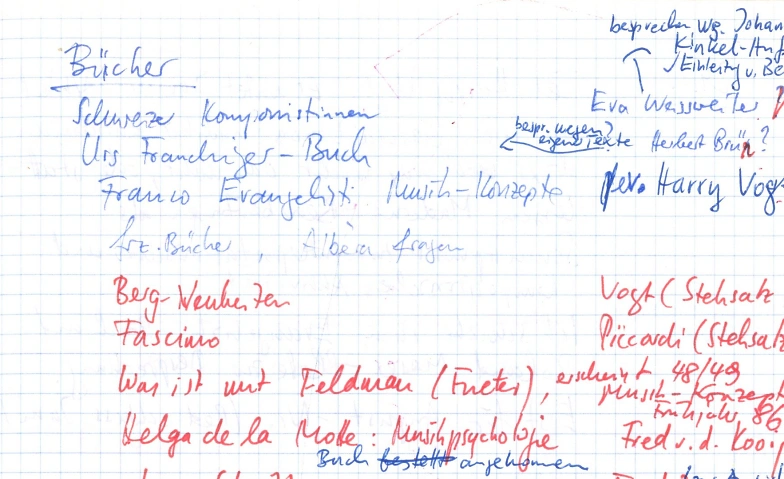 besprechen wg. Johan
Kinkel-Auf
Einleitg v. Be
Bücher
Eva Weissweiler
Schweizer Komponistinnen
bespr. wegen?
eigene Texte
Herbert Brün?
Urs Frauchiger-Buch
Franco Evangelisti Musik-Konzepte
Harry Vogt
frz. Bücher, Albèra fragen
Berg-Neuheiten
Vogt (Stehsatz
Fascimo
Piccardi (Stehsatz
Was ist mit Feldman (Fueter), erscheint 48/49
Musik-Konzept
Frühjahr 86
Helga de la Motte: Musikpsychologie
Fred v. d. Kooij
Buch bestellt angekommen